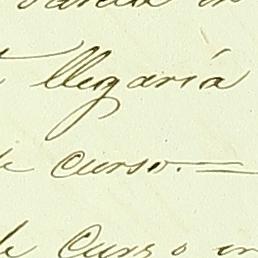 llegaría
de curso.=
de Curso en